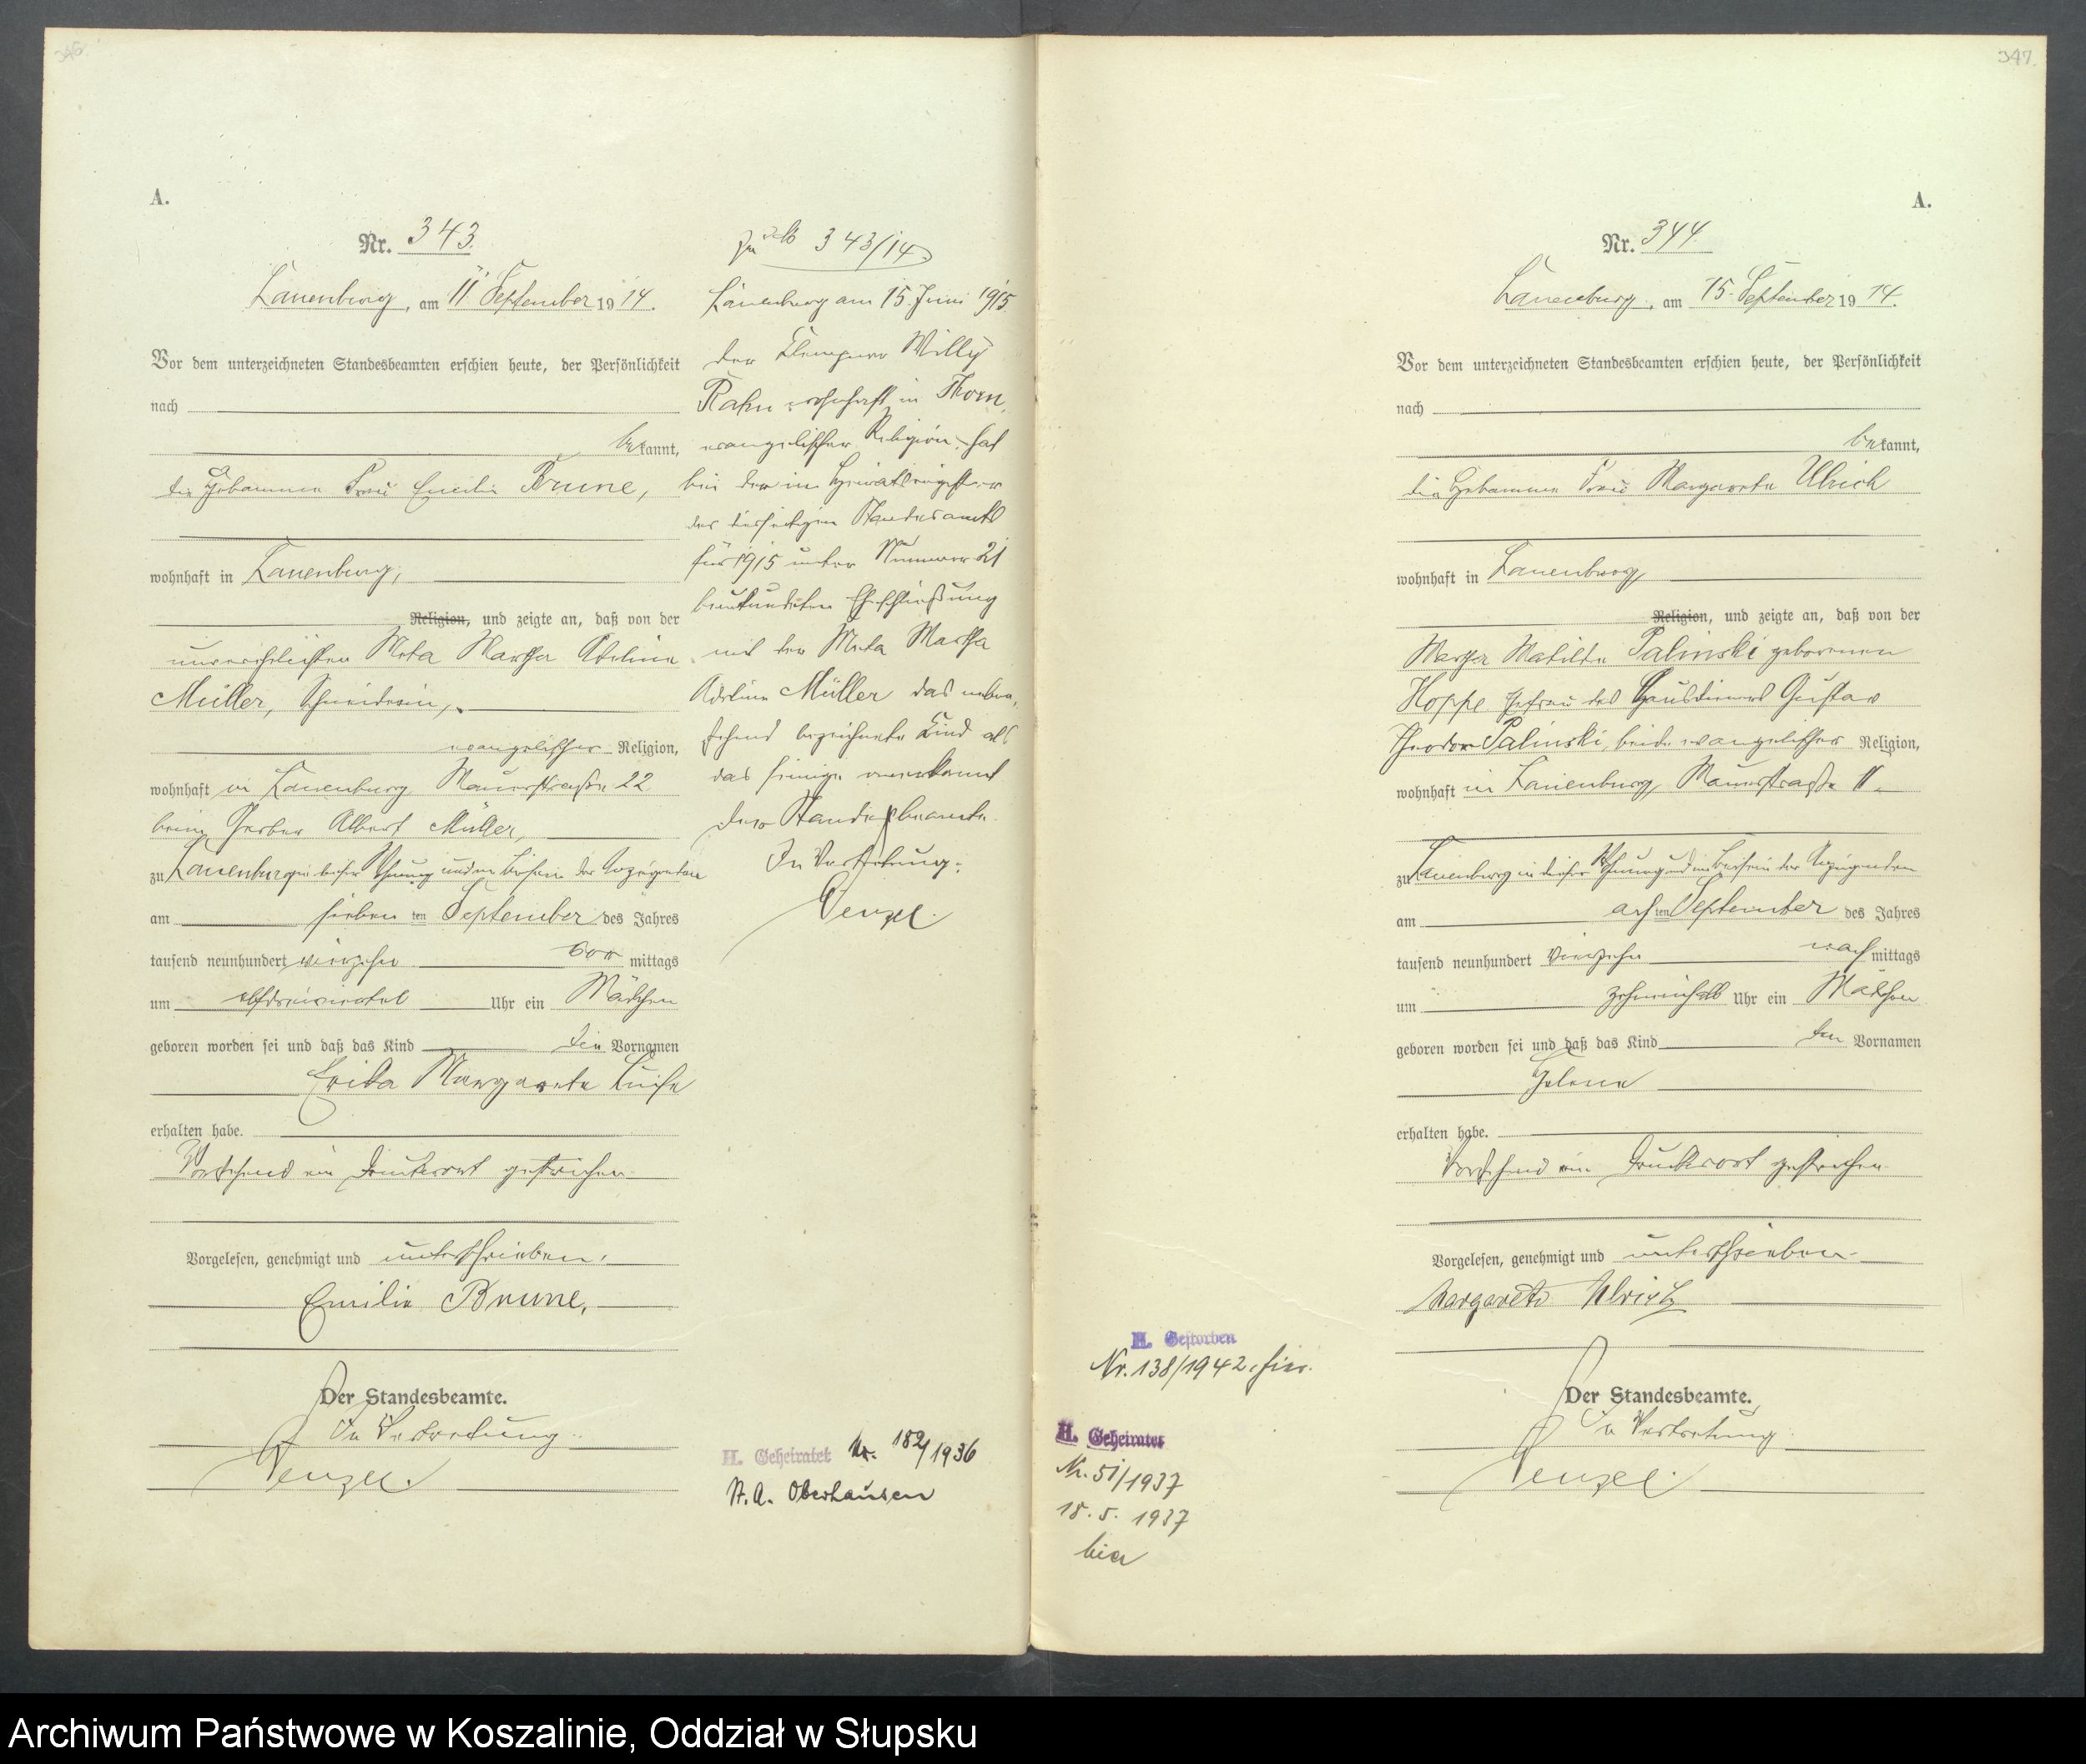 346.
A.
Nr. 343.
Lauenburg, am 11. September 1914.
Vor dem unterzeichneten Standesbeamten erschien heute, der Persönlichkeit
nach
bekannt,
die Hebamme Frau Emilie Brune,
wohnhaft in Lauenburg,
Religion, und zeigte an, daß von der
unverehelichten Meta Martha Adeline
Müller, Schneiderin,
evangelischer Religion,
wohnhaft in Lauenburg, Mauerstraße 22
beim Gerber Albert Müller,
zu Lauenburg in dieser Wohnung und im Beisein der Anzeigenden
am sieben ten September des Jahres
tausend neunhundert vierzehn vor mittags
um elfdreiviertel Uhr ein Mädchen
geboren worden sei und daß das Kind die Vornamen
Erika Margarete Luise
erhalten habe.
Vorstehend ein Druckwort gestrichen.
Vorgelesen, genehmigt und unterschrieben.
Emilie Brune.
Der Standesbeamte.
In Vertretung.
Wenzel.
Zu No 343/14.
Lauenburg am 15. Juni 1915.
Der Klempner Willy
Rahn wohnhaft in Thorn,
evangelischer Religion, hat
bei der im Heiratsregister
des diesseitigen Standesamts
für 1915 unter Nummer 21
beurkundeten Eheschließung
mit der Meta Martha
Adeline Müller das neben
stehend bezeichnete Kind als
das seinige anerkannt
Der Standesbeamte.
In Vertretung.
Wenzel.
H. Geheiratet Nr. 182/1936
St. A. Oberhausen
347.
A.
Nr. 344.
Lauenburg, am 15. September 1914.
Vor dem unterzeichneten Standesbeamten erschien heute, der Persönlichkeit
nach
bekannt,
die Hebamme Frau Margarete Ulrich
wohnhaft in Lauenburg,
Religion, und zeigte an, daß von der
Martha Matilde Palinski geborenen
Hoppe Ehefrau des Hausdieners Gustav
Theodor Palinski, beide evangelischer Religion,
wohnhaft in Lauenburg, Mauerstraße 11
zu Lauenburg in dieser Wohnung und im Beisein der Anzeigenden
am ach ten September des Jahres
tausend neunhundert vierzehn nach mittags
um zehneinhalb Uhr ein Mädchen
geboren worden sei und daß das Kind den Vornamen
Helene
erhalten habe.
Vorstehend ein Druckwort gestrichen.
Vorgelesen, genehmigt und unterschrieben.
Margarete Ulrich
Der Standesbeamte.
In Vertretung.
Wenzel.
H. Gestorben
Nr. 138/1942, hier.
H. Geheiratet
Nr. 51/1937
18. 5. 1937
hier
Archiwum Państwowe w Koszalinie, Oddział w Słupsku